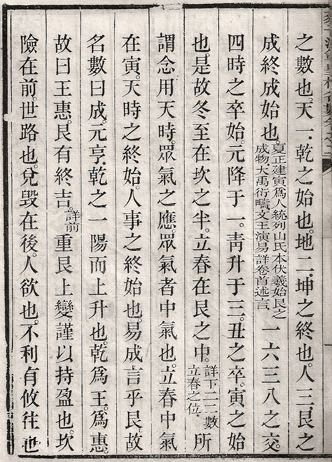 之數也。天一。乾之始也。地二。坤之終也。人三。艮之
成終成始也。夏正建寅爲人統列山氏本伏羲始艮之成物大禹衍疇文王演易詳卷首述言一六三八之交。
四時之卒始。元降于一。靑升于三。丑之卒。寅之始
也。是故冬至在坎之半。立春在艮之中。詳下二二數立春之位所
謂念用天時。眾氣之應。眾氣者中氣也。立春中氣
在寅。天時之終始。人事之終始也。易成言乎艮。故
名數曰成。元亨。乾之一陽而上升也。乾爲王。爲惠。
故曰王惠。艮有終吉。詳前重艮上變。謹以持盈也。坎
險在前。世路也。兌毀在後。人欲也。不利有攸往。艮